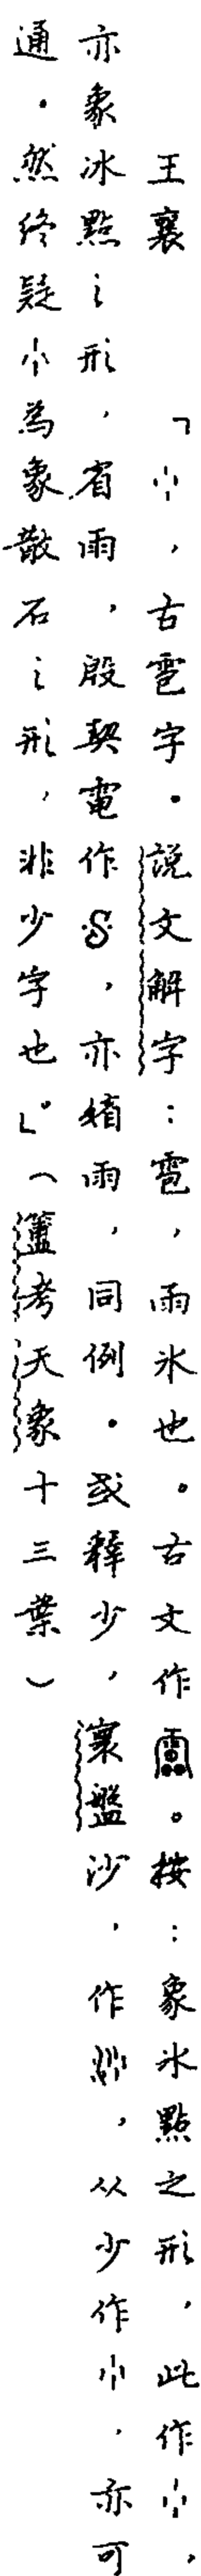 王襄　「⺌，古雹字。說文解字：雹，雨氷也。古文作䨔。按：象氷點之形，此作⺌，
亦象冰點之形，省雨，殷契電作，亦媘雨，同例。或釋少，寰盤沙，作，从少作小，亦可
通。然終疑小為象散石之形，非少字也」。（簠考天象十三葉）